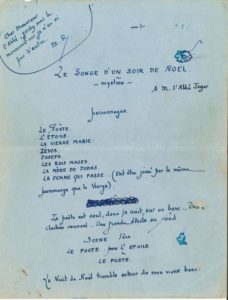 Cher Monsieur
l'Abbé
M. R.
-1-
LE SONGE D'UN SOIR DE NOEL
- mystère -
A M. l'Abbé Jager
personnages
LE POÈTE
L'ETOILE
LA VIERGE MARIE
JESUS
JOSEPH
LES ROIS MAGES
LA MÈRE DE JUDAS
LA FEMME QUI PASSE (Doit être joué par le même
personnage que la Vierge)
Le poète est seul, dans la nuit sur un banc. Des
cloches sonnent. Une grande étoile au
SCENE 1ère
LE POETE puis L'ETOILE
LE POETE.
La Nuit de Noël tremble autour de mon vieux banc: